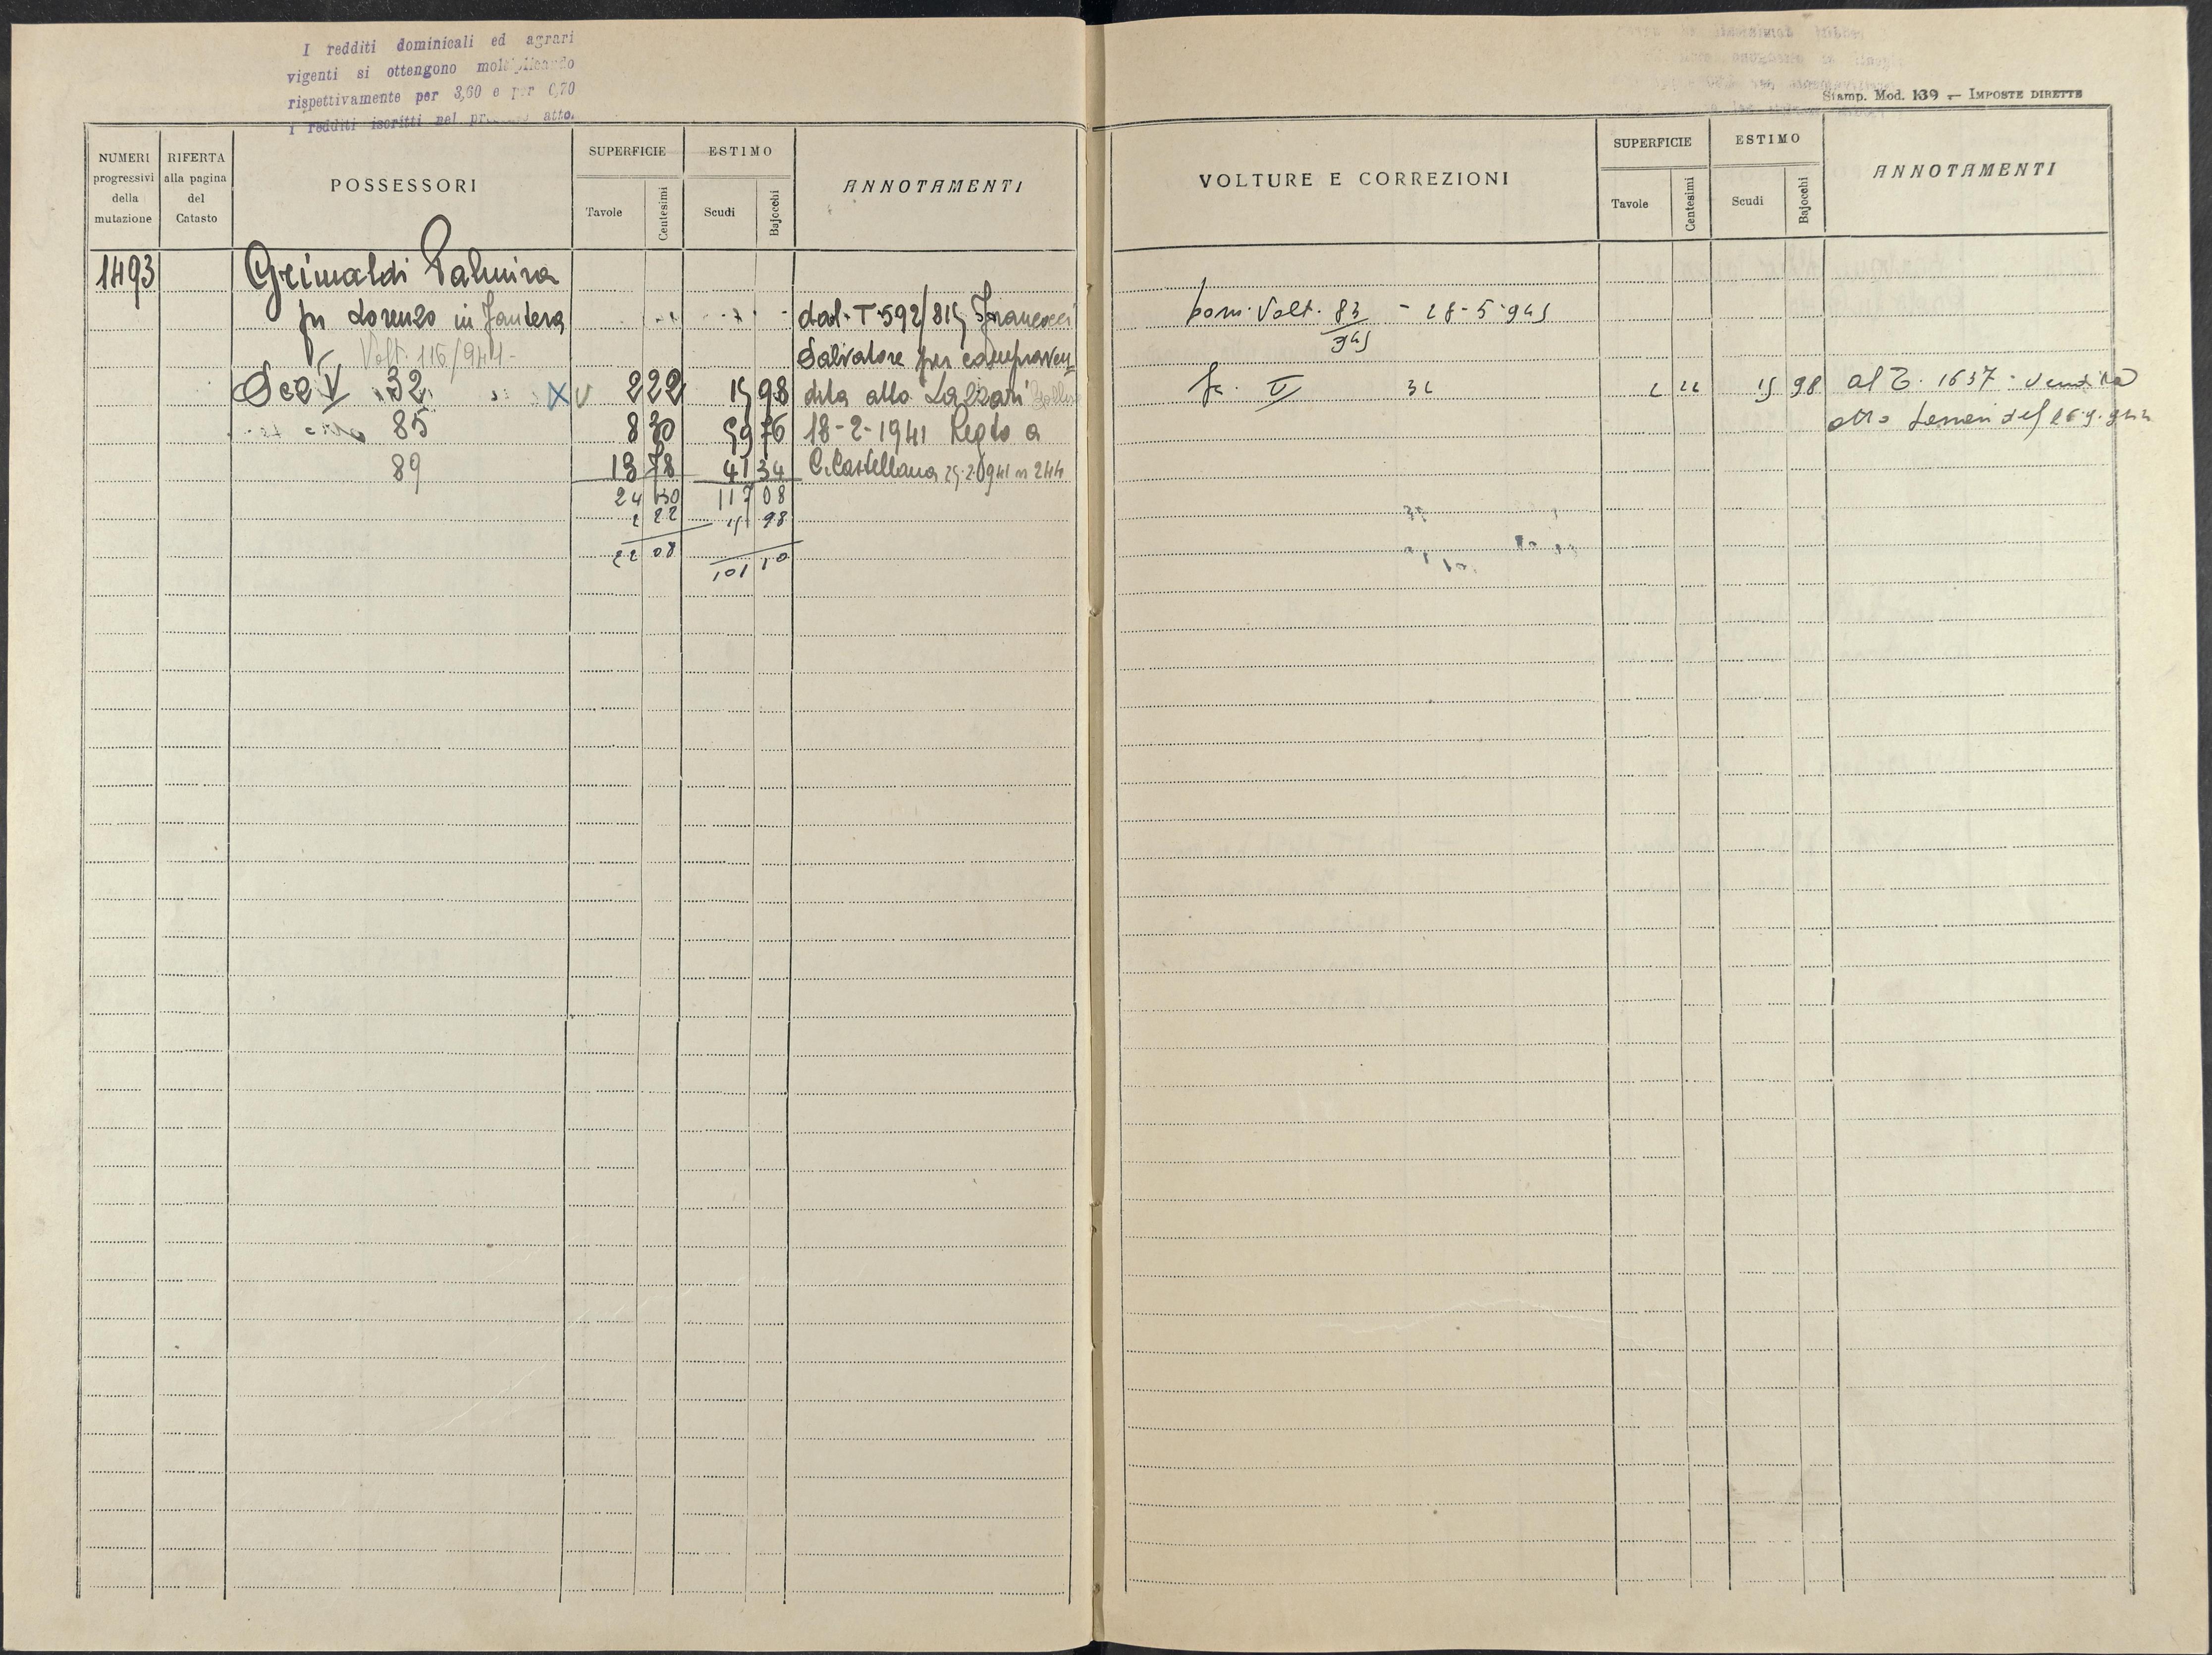 I redditi dominicali ed agrari
vigenti si ottengono moltiplicando
rispettivamente per 3,60 e per 0,70
i redditi iscritti nel atto.
NUMERI progressivi della mutazione
RIFERTA alla pagina del Catasto
POSSESSORI
SUPERFICIE
Tavole
Centesimi
ESTIMO
Scudi
Bajocchi
ANNOTAMENTI
1493 Grimaldi Palmira
fu Lorenzo in Jantera dal T 592/815
Volt. 116/941 Salvatore per compraven
Sez V 32 X V 2 22 15 98 dita atto Lazzari
85 8 30 59 76 18-2-1941 Regto a
89 13 78 41 34 C. Castellana 25.2.941 n 244
24 30 117 08
2 22 15 98
22 08 101 10
Stamp. Mod. 139 — IMPOSTE DIRETTE
VOLTURE E CORREZIONI
SUPERFICIE
Tavole
Centesimi
ESTIMO
Scudi
Bajocchi
ANNOTAMENTI
Volt. 83/945 - 28-5-945
V 32 2 22 15 98 al T. 1637 vendita
atto del